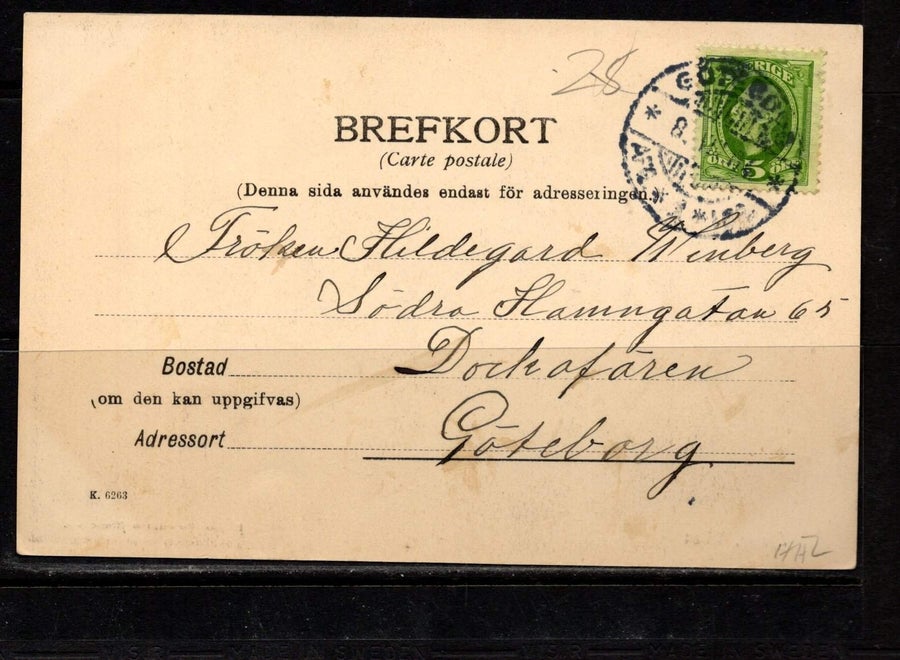 28
BREFKORT
(Carte postale)
(Denna sida användes endast för adresseringen.)
SVERIGE
ÖRE 5
Fröken Hildegard Winberg
Södra Hamngatan 65
Bostad Dockafären
(om den kan uppgifvas)
Adressort Göteborg
K. 6263
MADE IN SWEDEN